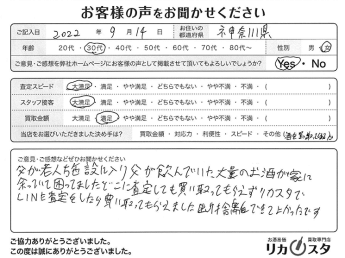 お客様の声をお聞かせください
ご記入日 2022年 9月14日 お住いの都道府県 神奈川県
年齢 20代・30代・40代・50代・60代・70代・80代〜 性別 男・女
ご意見・ご感想を弊社ホームページにお客様の声として掲載させて頂いてもよろしいでしょうか? Yes・No
査定スピード 大満足・満足・やや満足・どちらでもない・やや不満・不満・( )
スタッフ接客 大満足・満足・やや満足・どちらでもない・やや不満・不満・( )
買取金額 大満足・満足・やや満足・どちらでもない・やや不満・不満・( )
当店をお選びいただきました決め手は? 買取金額・対応力・利便性・スピード・その他
ご意見・ご感想などぜひお聞かせください
父が老人ち施設に入り父が飲んでいた大量のお酒が家に
余っていて困ってましたどこに査定しても買い取ってもらえずリカスタで
LINE査定をしたら買い取ってもらえました 断捨離できてよかったです
ご協力ありがとうございました。
この度は誠にありがとうございました。
お酒高価 買取専門店
リカスタ